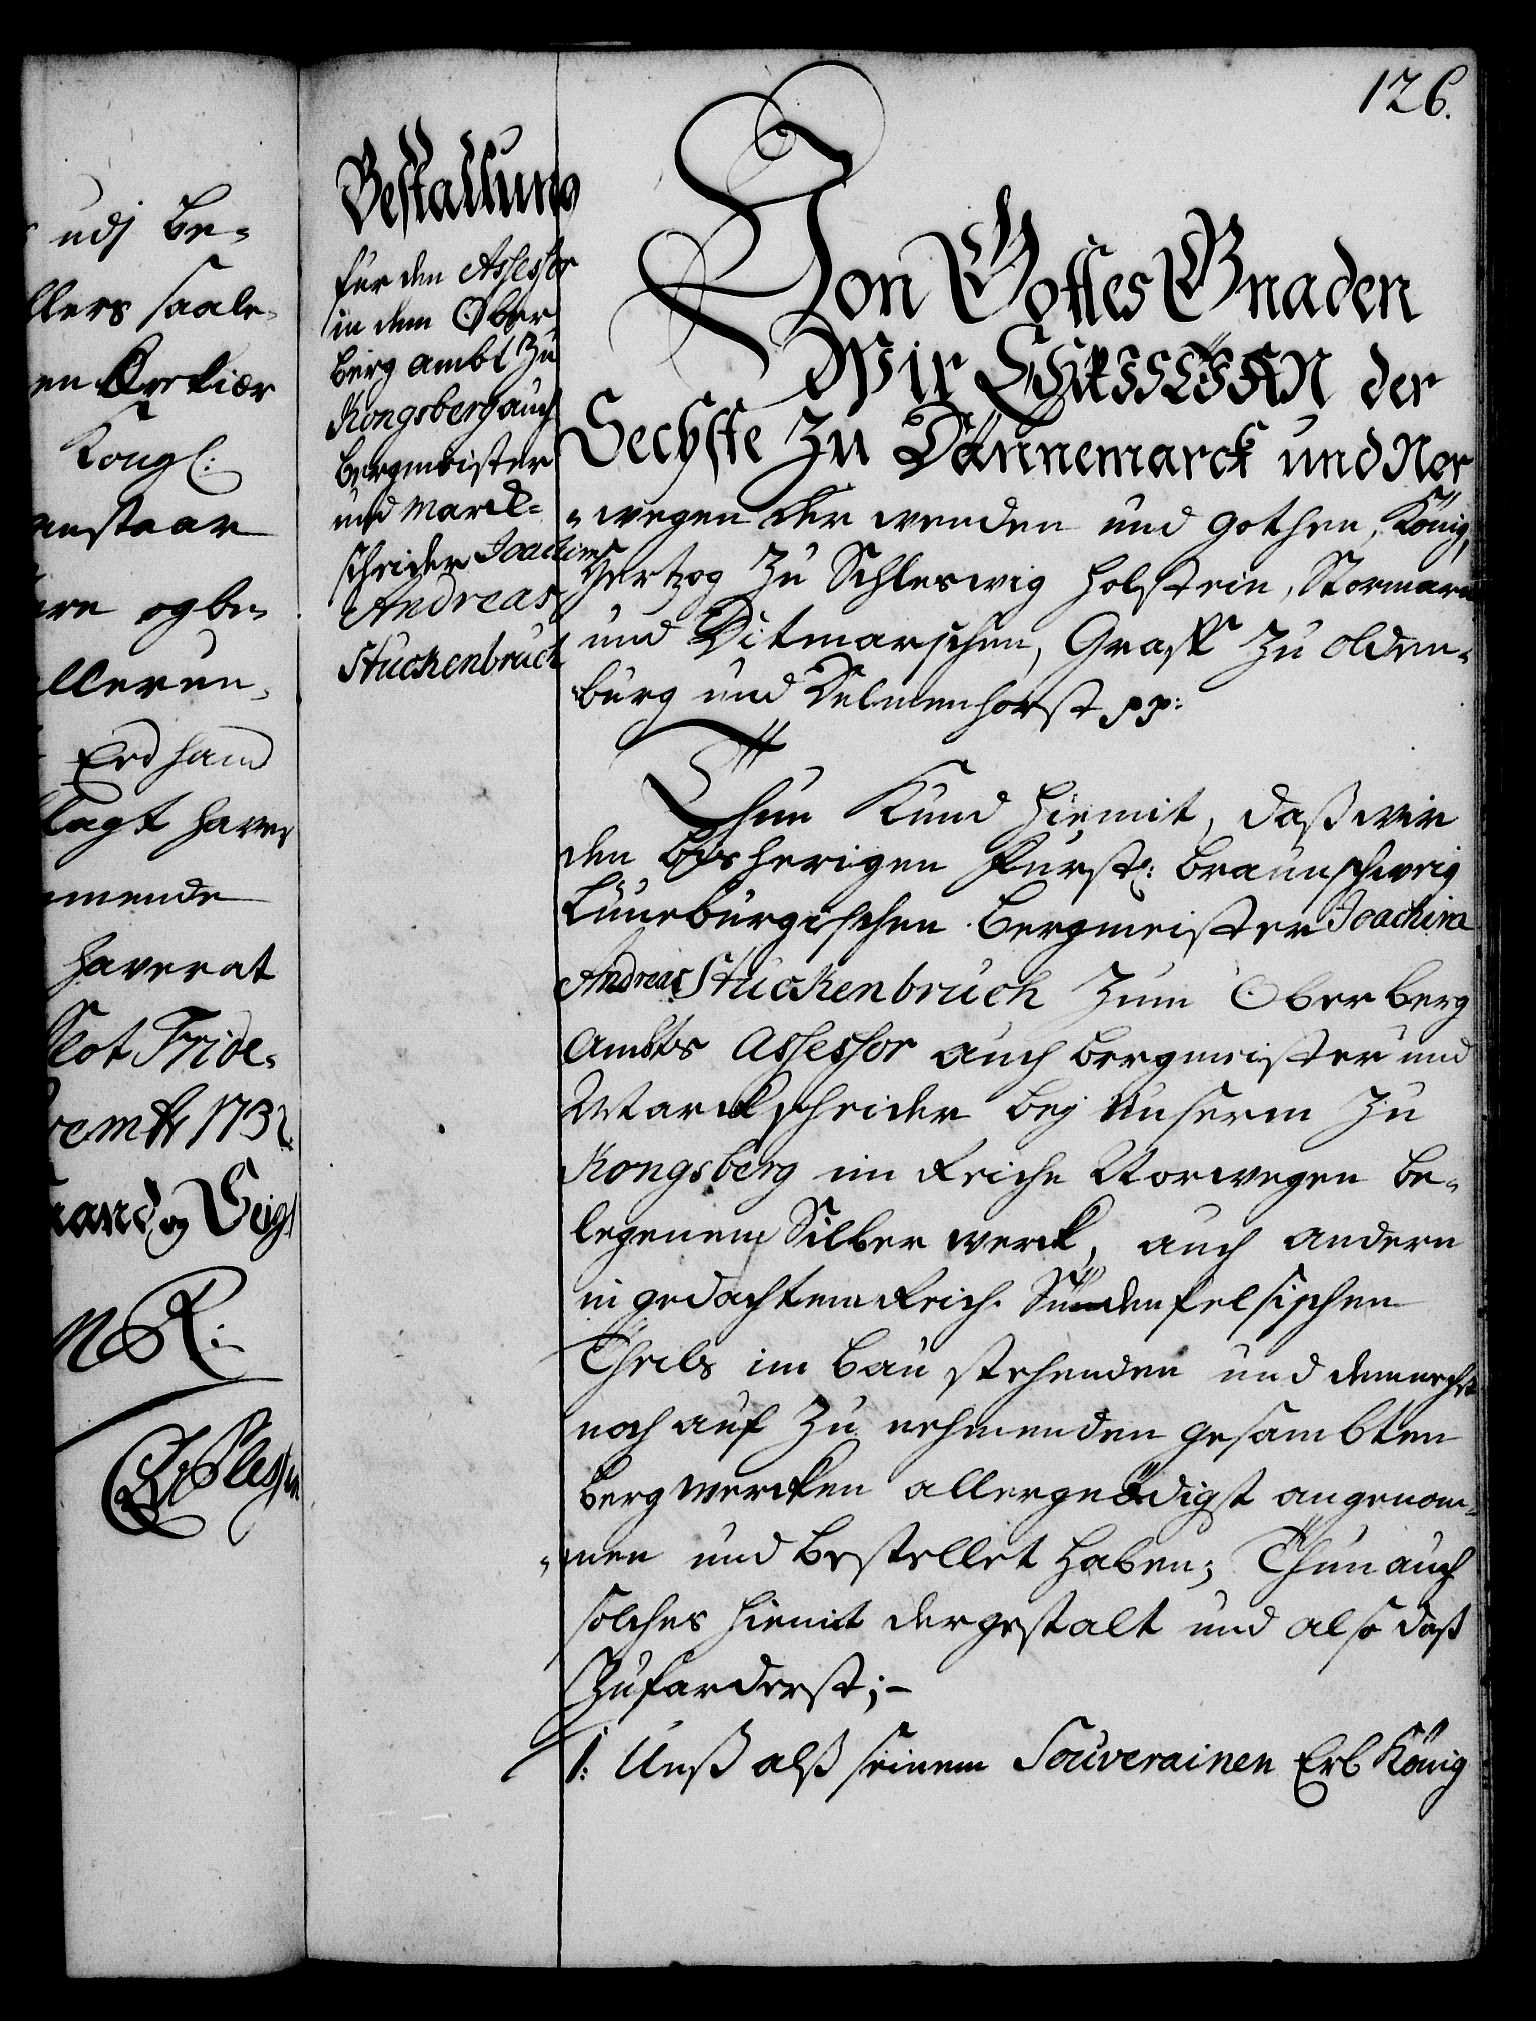 126.
udj Be-
llers saale-
en
Kongl:
anstaar
ere og be-
lleren-
Erd haud
lagt haver
mende
haver at
Slot Fride-
1732.
og Seigl
R:
CAvPlessen
Bestallung
für den Assessor
in dem Ober
berg ambt zu
Kongsberg auch
Bergmeister
und Marck-
scheider Joachim
Andreas
Stuckenbruch
Von Gottes Gnaden
Wir CHRISTIAN der
Sechste zu Dännemarck und Nor
-wegen der Wenden und Gothen, König,
Hertzog zu Schleswig Holstein, Stormarn
und Ditmarschen, Graff zu Olden-
burg und Delmenhorst pp:
Thun kund hiemit, daß wir
den bisherigen Fürstl: Braunschweig
Lüneburgischen Bergmeister Joachim
Andreas Stuckenbruch zum Ober berg
Ambts Assessor auch Bergmeister und
Marckscheider bey Unserm zu
Kongsberg im Reiche Norwegen be-
legenem Silber werck, auch andern
in gedachtem Reich Südenfelsischen
Theils im bau stehenden und demnechst
noch auf zu nehmenden gesambten
Berg wercken allergnädigst angenom-
-men und bestellet haben; Thun auch
solches hiemit dergestalt und also daß
Zuforderst;-
1: Unß alß seinem Souverainen Erb König